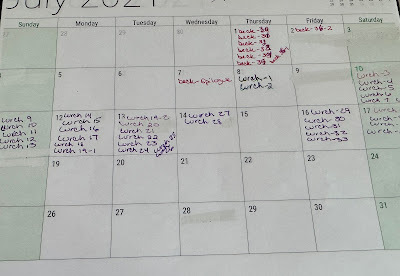 July 2021
Sunday Monday Tuesday Wednesday Thursday Friday Saturday
1
beck-
beck-
beck-
beck-
beck-
2 beck-36-2
3
5
6
7
beck-Epilogue
8
wrch-1
wrch-2
9
10
wrch-3
wrch-4
wrch-5
wrch 6
wrch 7
wrch 9
wrch 10
wrch 11
wrch 12
wrch 13
12 wrch 14
wrch 15
wrch 16
wrch 17
wrch 18
wrch 19-1
13 wrch 19-2
wrch 20
wrch 21
wrch 22
wrch 23
wrch 24
14 wrch 27
wrch 28
15
16 wrch-29
wrch-30
wrch-31
wrch-32
wrch-33
17
19
20
21
22
23
26
27
28
29
30
31